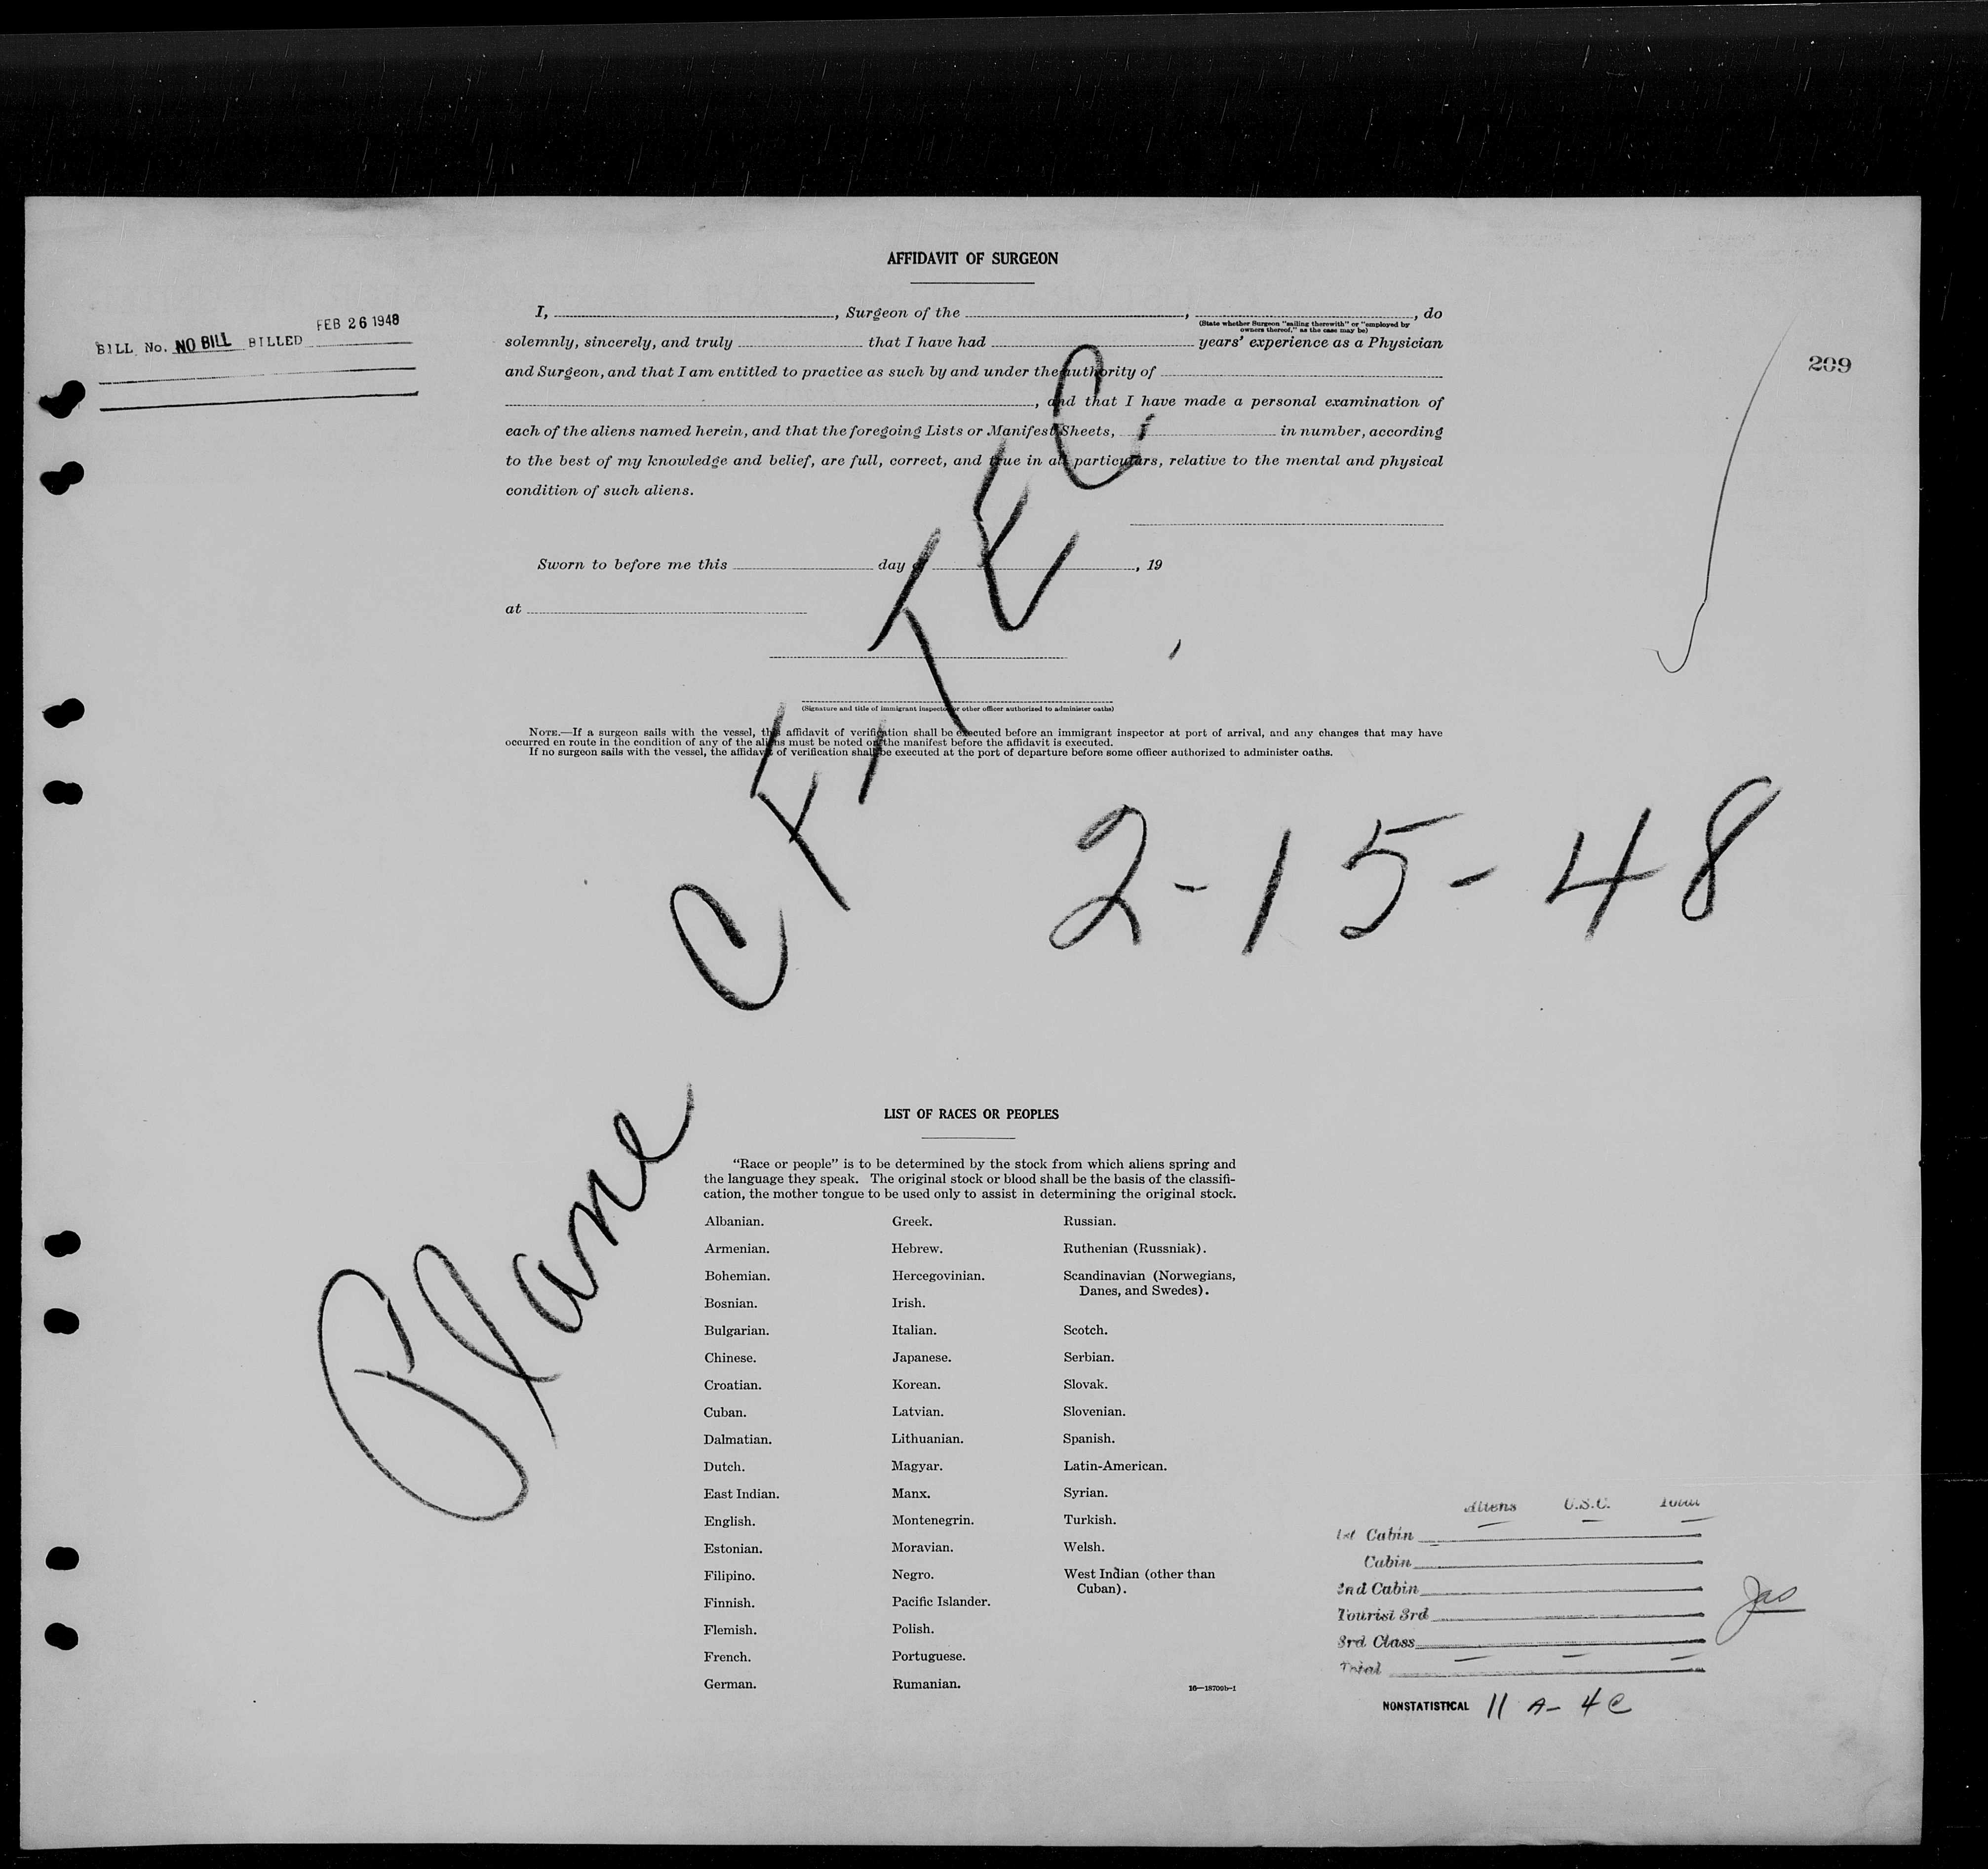 AFFIDAVIT OF SURGEON
BILL No. NO BILL BILLED FEB 26 1948
209
I, , Surgeon of the , , do
(State whether Surgeon "sailing therewith" or "employed by
owners thereof," as the case may be)
solemnly, sincerely, and truly that I have had years' experience as a Physician
and Surgeon, and that I am entitled to practice as such by and under the authority of
, and that I have made a personal examination of
each of the aliens named herein, and that the foregoing Lists or Manifest Sheets, in number, according
to the best of my knowledge and belief, are full, correct, and true in all particulars, relative to the mental and physical
condition of such aliens.
Sworn to before me this day of , 19
at
(Signature and title of immigrant inspector or other officer authorized to administer oaths)
NOTE.—If a surgeon sails with the vessel, this affidavit of verification shall be executed before an immigrant inspector at port of arrival, and any changes that may have
occurred en route in the condition of any of the aliens must be noted on the manifest before the affidavit is executed.
If no surgeon sails with the vessel, the affidavit of verification shall be executed at the port of departure before some officer authorized to administer oaths.
Plane CF-TEC
2-15-48
LIST OF RACES OR PEOPLES
"Race or people" is to be determined by the stock from which aliens spring and
the language they speak. The original stock or blood shall be the basis of the classifi-
cation, the mother tongue to be used only to assist in determining the original stock.
Albanian.
Armenian.
Bohemian.
Bosnian.
Bulgarian.
Chinese.
Croatian.
Cuban.
Dalmatian.
Dutch.
East Indian.
English.
Estonian.
Filipino.
Finnish.
Flemish.
French.
German.
Greek.
Hebrew.
Hercegovinian.
Irish.
Italian.
Japanese.
Korean.
Latvian.
Lithuanian.
Magyar.
Manx.
Montenegrin.
Moravian.
Negro.
Pacific Islander.
Polish.
Portuguese.
Rumanian.
Russian.
Ruthenian (Russniak).
Scandinavian (Norwegians,
Danes, and Swedes).
Scotch.
Serbian.
Slovak.
Slovenian.
Spanish.
Latin-American.
Syrian.
Turkish.
Welsh.
West Indian (other than
Cuban).
16—18709b-1
Aliens U.S.C. Total
1st Cabin
Cabin
2nd Cabin
Tourist 3rd
3rd Class
Total
NONSTATISTICAL 11 A- 4 C